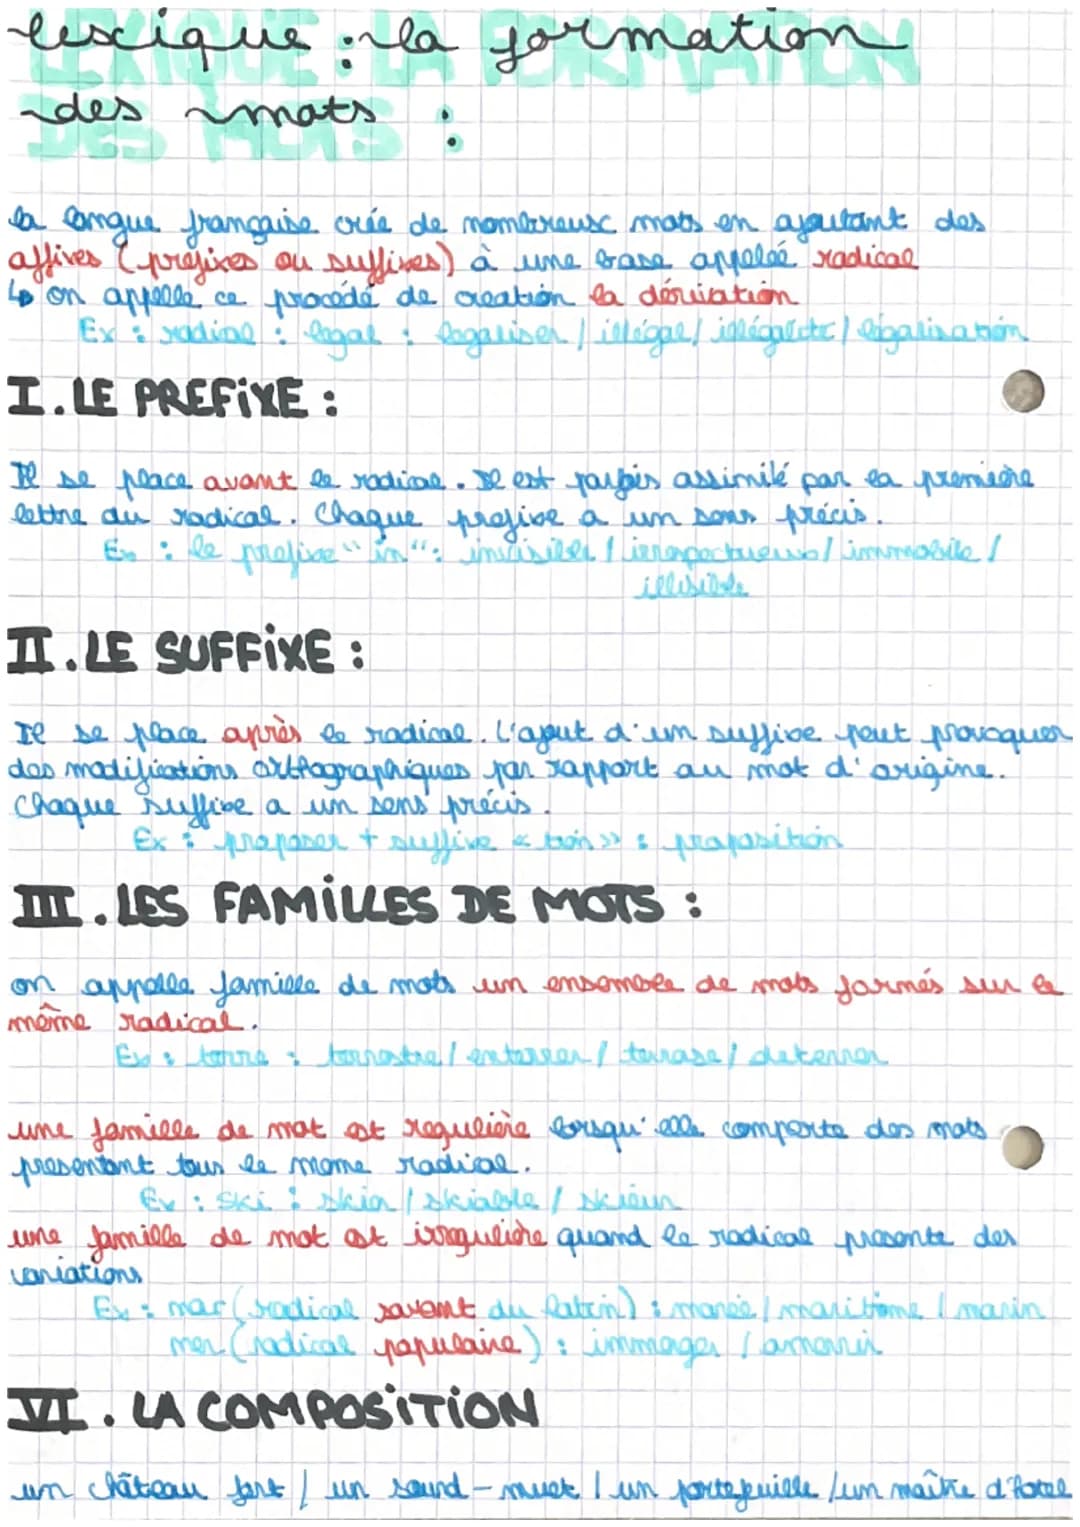 lexique : la formation
des mots :
la langue française crée de nombreux mots en ajoutant des
affixes (prefixes ou suffixes) à une base appelée radical
↳ on appelle ce procédé de création la dérivation
Ex : radical : legal : legaliser / illégal / illégalité / légalisation
I. LE PREFiXE :
Il se place avant le radical. Il est parfois assimilé par la première
lettre du radical. Chaque prefixe a un sens précis.
Ex : le prefixe "in" : invisible / irrespectueux / immobile /
illisible
II. LE SUFFiXE :
Il se place après le radical. L'ajout d'un suffixe peut provoquer
des modifications orthographiques par rapport au mot d'origine.
Chaque suffixe a un sens précis.
Ex : proposer + suffixe « tion » : proposition
III. LES FAMiLLES DE MOTS :
on appelle famille de mots un ensemble de mots formés sur le
même radical.
Ex : terre : terrestre / enterrer / terrase / deterrer
une famille de mot est regulière lorsqu'elle comporte des mots
presentant tous le meme radical.
Ex : ski : skier / skiable / skieur
une famille de mot est irregulière quand le radical presente des
variations
Ex : mar (radical savant du latin) : marée / maritime / marin
mer (radical populaire) : immerger / amerrir
VI. LA COMPOSiTiON
un château fort / un sourd-muet / un portefeuille / un maître d'hotel